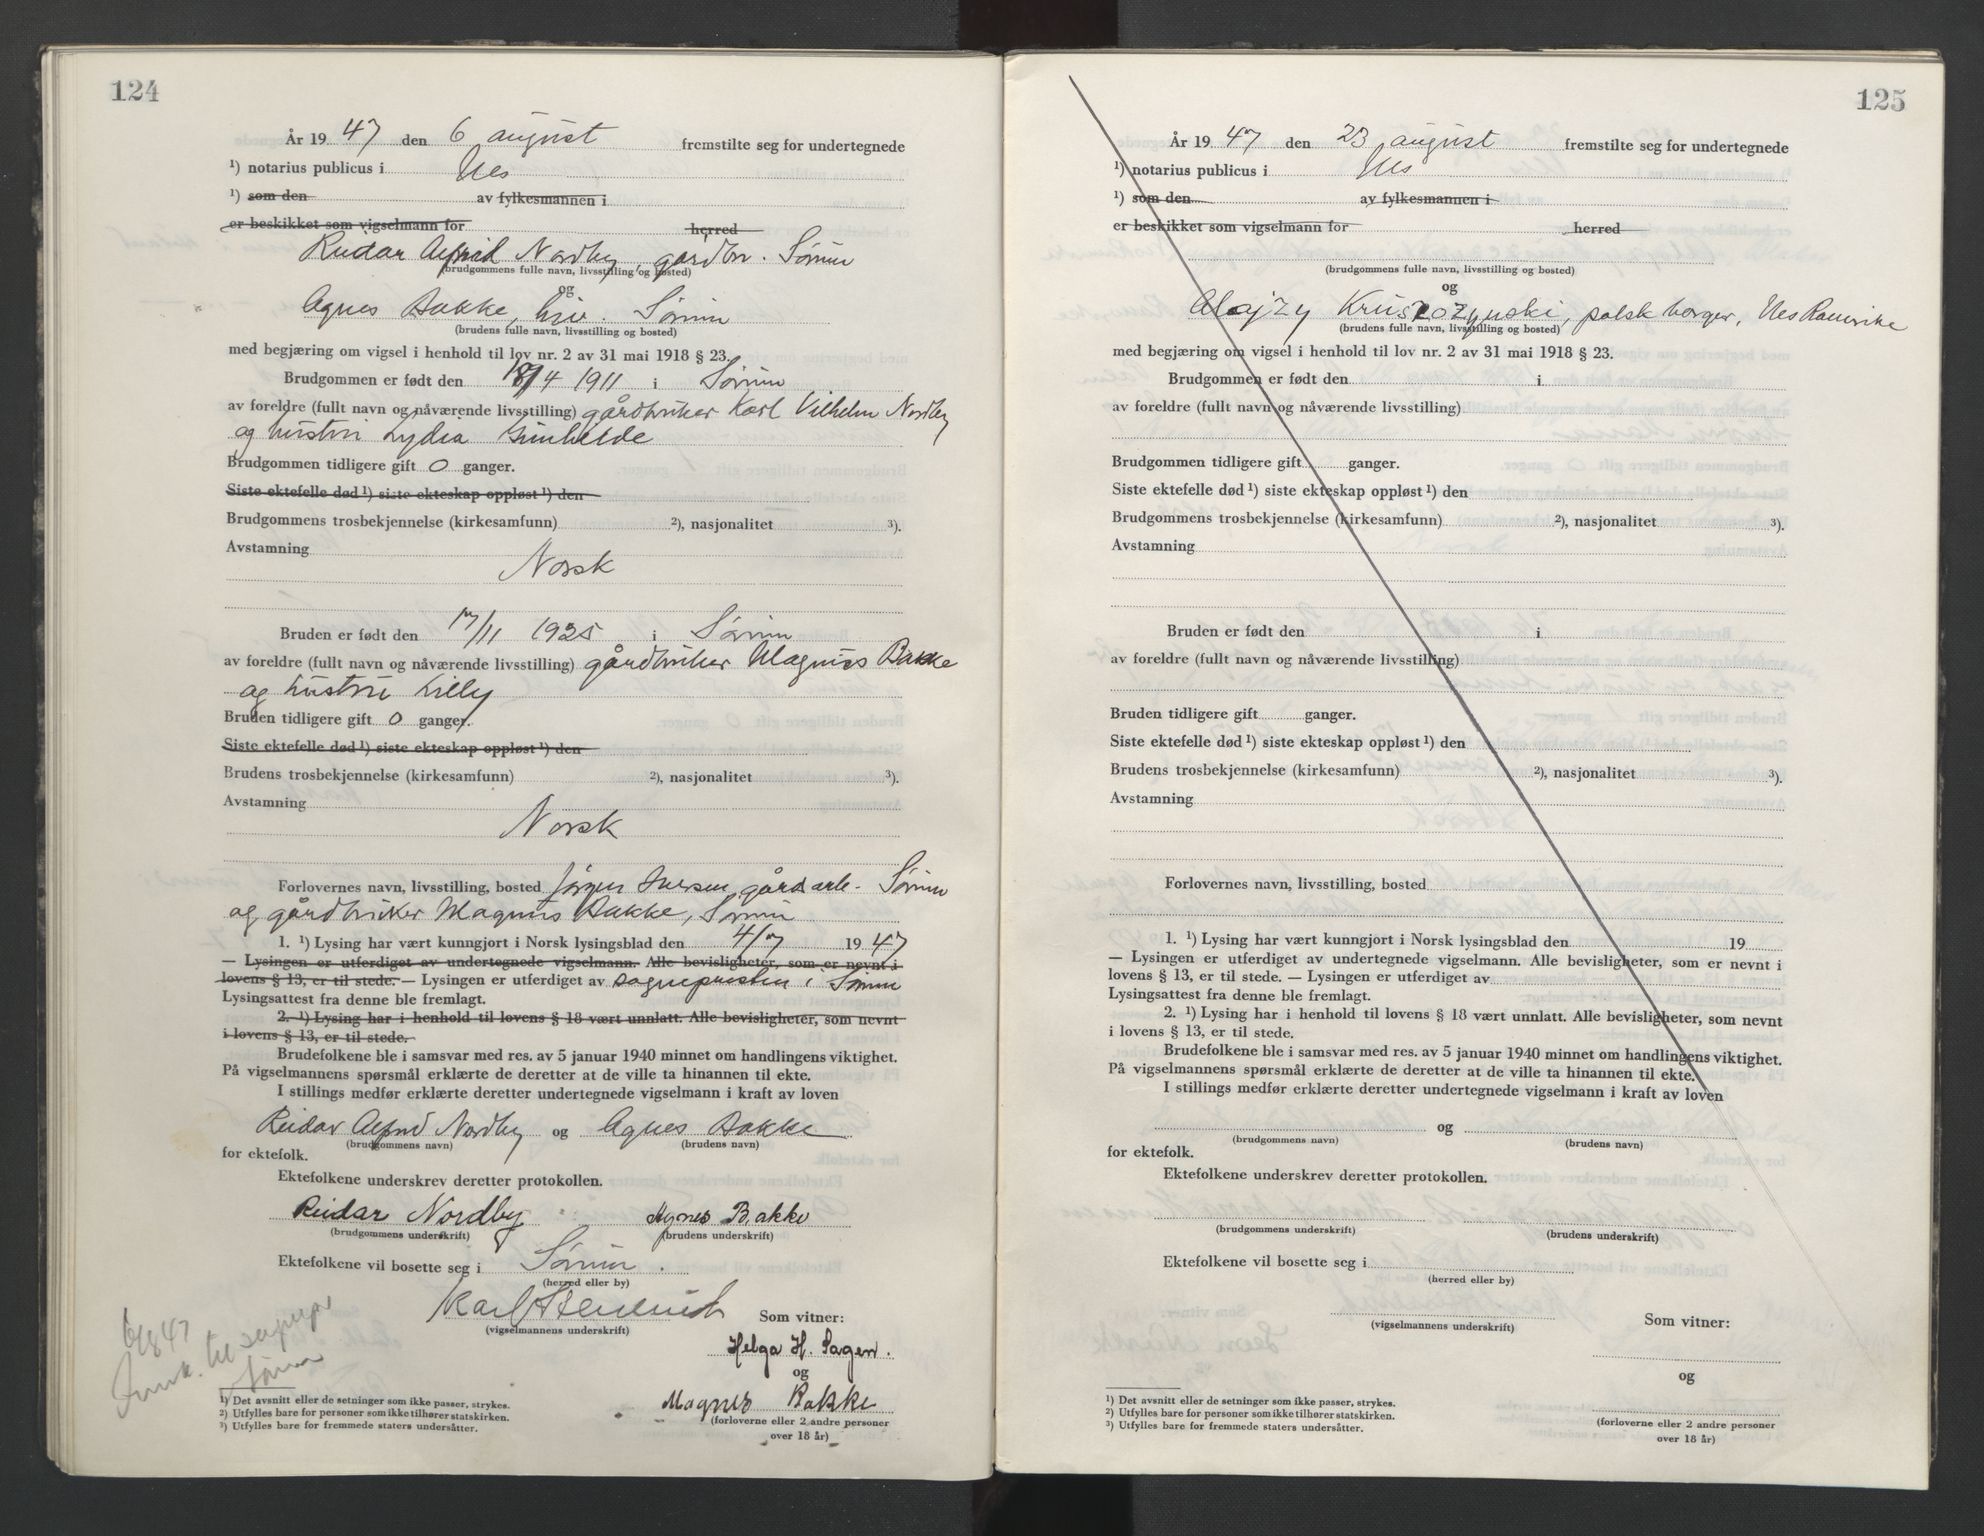 124
År 19 47 den 6 august fremstilte seg for undertegnede
¹) notarius publicus i Nes
¹) som den av fylkesmannen i
er beskikket som vigselmann for herred
Reidar Alfred Nordby, gårdbr. Sørum
(brudgommens fulle navn, livsstilling og bosted)
og
Agnes Bakke, Sørum
(brudens fulle navn, livsstilling og bosted)
med begjæring om vigsel i henhold til lov nr. 2 av 31 mai 1918 § 23.
Brudgommen er født den /4 1911 i Sørum
av foreldre (fullt navn og nåværende livsstilling) gårdbruker Karl Vilhelm Nordby
og hustru Lydia
Brudgommen tidligere gift 0 ganger.
Siste ektefelle død ¹) siste ekteskap oppløst ¹) den
Brudgommens trosbekjennelse (kirkesamfunn) ²), nasjonalitet ³).
Avstamning
Norsk
Bruden er født den 17/11 1925 i Sørum
av foreldre (fullt navn og nåværende livsstilling) gårdbruker Magnus Bakke
og hustru Lilly
Bruden tidligere gift 0 ganger.
Siste ektefelle død ¹) siste ekteskap oppløst ¹) den
Brudens trosbekjennelse (kirkesamfunn) ²), nasjonalitet ³).
Avstamning
Norsk
Forlovernes navn, livsstilling, bosted Jørgen gårdsarb. Sørum
og gårdbruker Magnus Bakke, Sørum
1. ¹) Lysing har vært kunngjort i Norsk lysingsblad den 4/7 19 47
— Lysingen er utferdiget av undertegnede vigselmann. Alle bevisligheter, som er nevnt i
lovens § 13, er til stede. — Lysingen er utferdiget av sognepresten i Sørum
Lysingsattest fra denne ble fremlagt.
2. ¹) Lysing har i henhold til lovens § 18 vært unnlatt. Alle bevisligheter, som nevnt
i lovens § 13, er til stede.
Brudefolkene ble i samsvar med res. av 5 januar 1940 minnet om handlingens viktighet.
På vigselmannens spørsmål erklærte de deretter at de ville ta hinannen til ekte.
I stillings medfør erklærte deretter undertegnede vigselmann i kraft av loven
Reidar Alfred Nordby og Agnes Bakke
(brudgommens navn) (brudens navn)
for ektefolk.
Ektefolkene underskrev deretter protokollen.
Reidar Nordby Agnes Bakke
(brudgommens underskrift) (brudens underskrift)
Ektefolkene vil bosette seg i Sørum.
(herred eller by)
Karl
(vigselmannens underskrift)
Som vitner:
Helga H. Sagen.
og
Magnus Bakke
(forloverne eller 2 andre personer
over 18 år)
6/8 47
til sognepr
Sørum
¹) Det avsnitt eller de setninger som ikke passer, strykes.
²) Utfylles bare for personer som ikke tilhører statskirken.
³) Utfylles bare for fremmede staters undersåtter.
125
År 19 47 den 23 august fremstilte seg for undertegnede
¹) notarius publicus i Nes
¹) som den av fylkesmannen i
er beskikket som vigselmann for herred
(brudgommens fulle navn, livsstilling og bosted)
og
Alojzy Kruszozynski, polsk borger, Nes Romerike
(brudens fulle navn, livsstilling og bosted)
med begjæring om vigsel i henhold til lov nr. 2 av 31 mai 1918 § 23.
Brudgommen er født den i
av foreldre (fullt navn og nåværende livsstilling)
Brudgommen tidligere gift ganger.
Siste ektefelle død ¹) siste ekteskap oppløst ¹) den
Brudgommens trosbekjennelse (kirkesamfunn) ²), nasjonalitet ³).
Avstamning
Bruden er født den i
av foreldre (fullt navn og nåværende livsstilling)
Bruden tidligere gift ganger.
Siste ektefelle død ¹) siste ekteskap oppløst ¹) den
Brudens trosbekjennelse (kirkesamfunn) ²), nasjonalitet ³).
Avstamning
Forlovernes navn, livsstilling, bosted
1. ¹) Lysing har vært kunngjort i Norsk lysingsblad den 19
— Lysingen er utferdiget av undertegnede vigselmann. Alle bevisligheter, som er nevnt i
lovens § 13, er til stede. — Lysingen er utferdiget av
Lysingsattest fra denne ble fremlagt.
2. ¹) Lysing har i henhold til lovens § 18 vært unnlatt. Alle bevisligheter, som nevnt
i lovens § 13, er til stede.
Brudefolkene ble i samsvar med res. av 5 januar 1940 minnet om handlingens viktighet.
På vigselmannens spørsmål erklærte de deretter at de ville ta hinannen til ekte.
I stillings medfør erklærte deretter undertegnede vigselmann i kraft av loven
og
(brudgommens navn) (brudens navn)
for ektefolk.
Ektefolkene underskrev deretter protokollen.
(brudgommens underskrift) (brudens underskrift)
Ektefolkene vil bosette seg i
(herred eller by)
(vigselmannens underskrift)
Som vitner:
og
(forloverne eller 2 andre personer
over 18 år)
¹) Det avsnitt eller de setninger som ikke passer, strykes.
²) Utfylles bare for personer som ikke tilhører statskirken.
³) Utfylles bare for fremmede staters undersåtter.